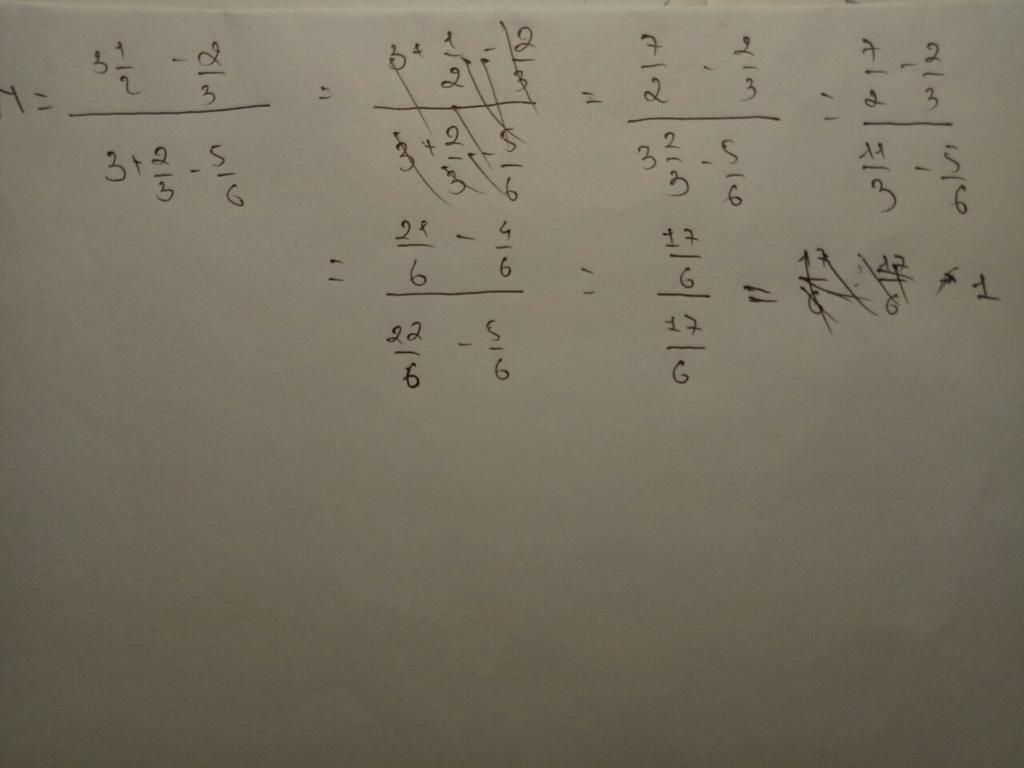 Y = (3 1/2 - 2/3) / (3 + 2/3 - 5/6) = (3 + 1/2 - 2/3) / (3 + 2/3 - 5/6) = (7/2 - 2/3) / (3 2/3 - 5/6) = (7/2 - 2/3) / (11/3 - 5/6)
= (21/6 - 4/6) / (22/6 - 5/6) = (17/6) / (17/6) = 17/6 : 17/6 = 1